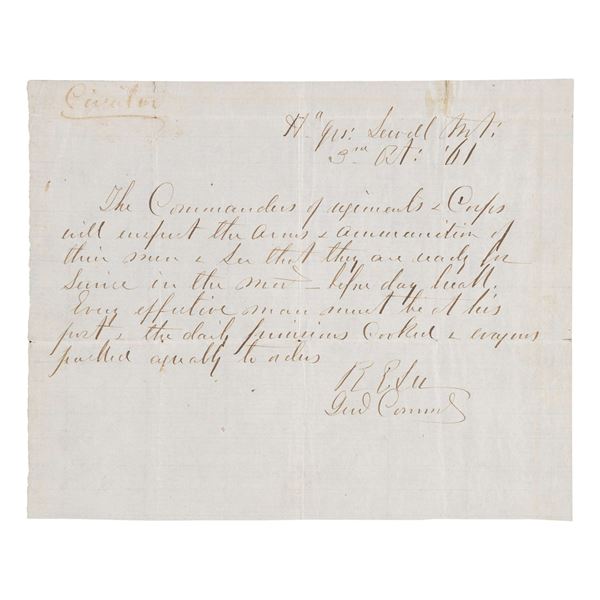 Circular
Hd qrs: Sewell Mt:
3rd Oct: '61
The Commanders of regiments & Corps
will inspect the arms & ammunition of
their men & See that they are ready for
Service in the mor — before day break.
Every effective man must be at his
post & the daily provisions Cooked & wagons
packed agreeably to orders
R E Lee
Genl Commd